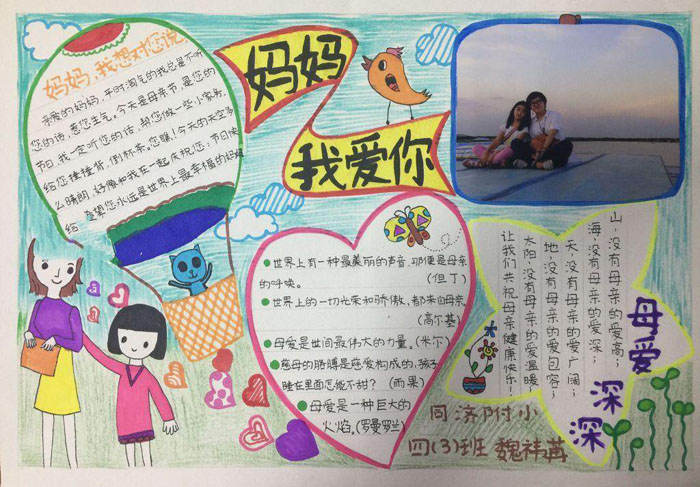 妈妈,我想对您说
亲爱的妈妈,平时淘气的我总是不听
您的话,惹您生气。今天是母亲节,是您的
节日,我一定听您的话,帮您做一些小家务,
给您捶捶背,倒杯茶。您瞧!今天的天空多
么晴朗,好像和我在一起庆祝您:节日快
望您永远是世界上最幸福的妈妈
妈妈
我爱你
世界上有一种最美丽的声音,那便是母亲
的呼唤。(但丁)
世界上的一切光荣和骄傲,都来自母亲
(高尔基)
母爱是世间最伟大的力量。(米尔)
慈母的胳膊是慈爱构成的,孩子
睡在里面怎能不甜?(雨果)
母爱是一种巨大的
火焰。(罗曼罗兰)
山,没有母亲的爱高;
海,没有母亲的爱深;
天,没有母亲的爱广阔;
地,没有母亲的爱包容;
太阳,没有母亲的爱温暖;
让我们共祝母亲健康快乐!
母爱深深
同济附小
四(3)班 魏祎